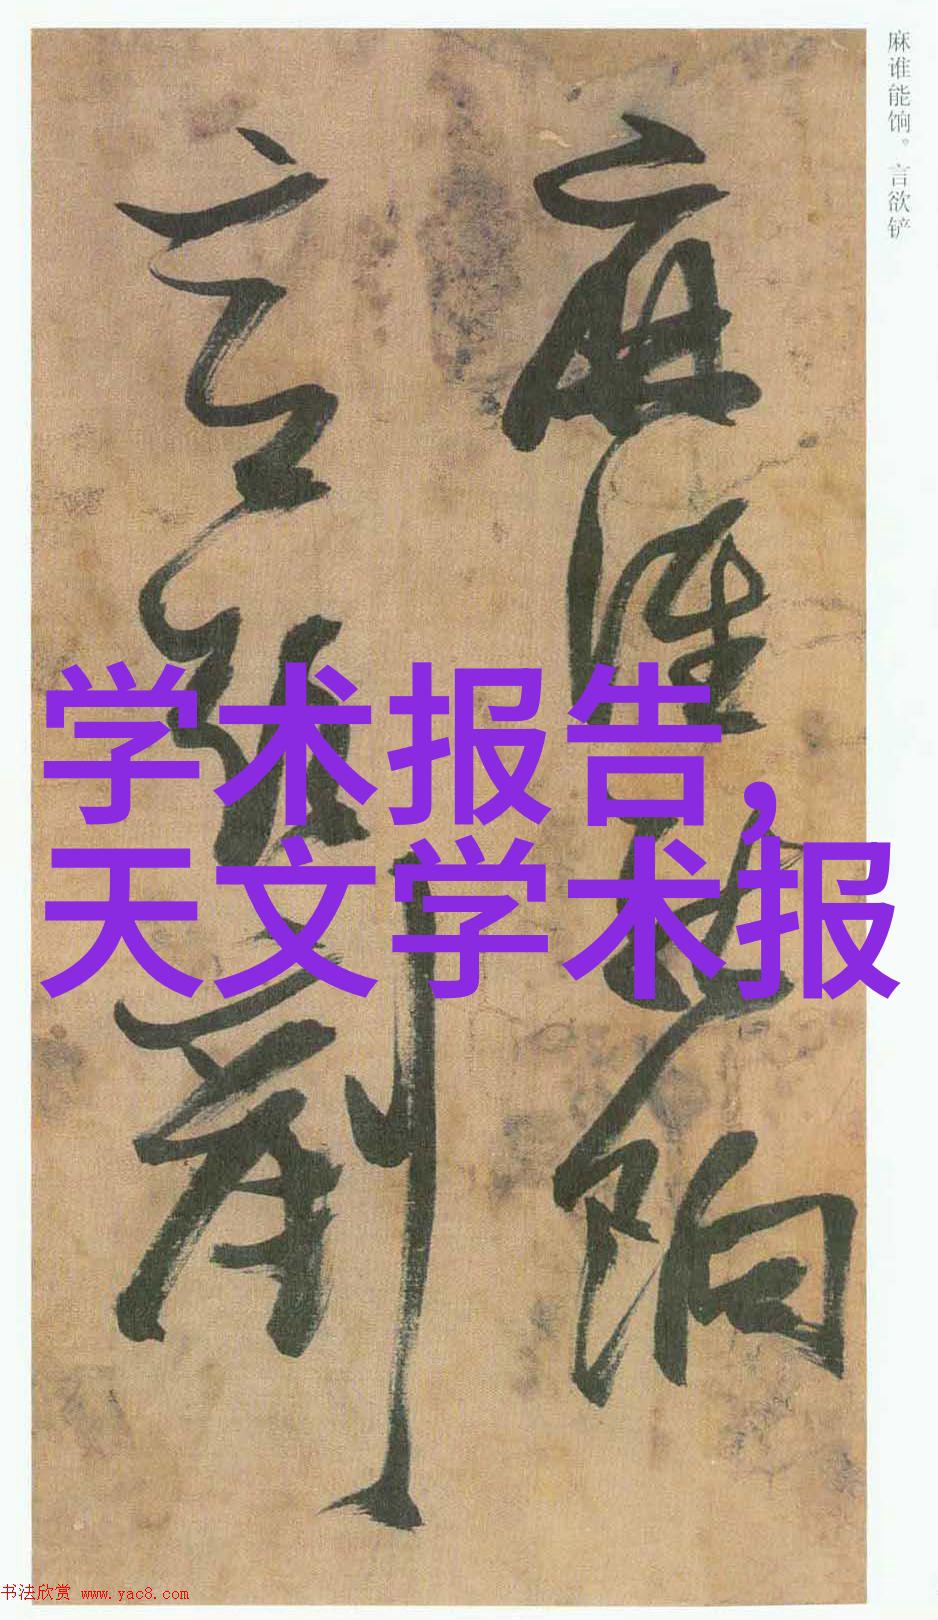 麻谁能饷。言欲铲
麻谁能饷
言欲剷
学术报告,
天文学术报
书法欣赏 www.yac8.com